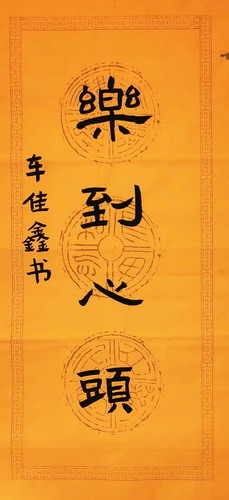 樂到心頭
车佳鑫书